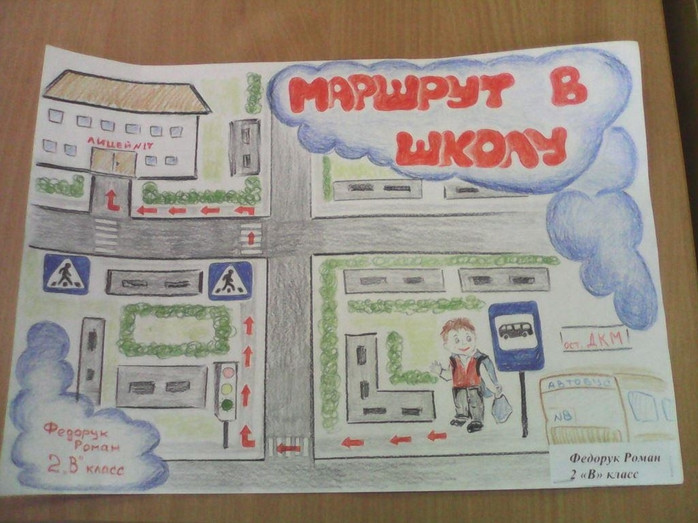 МАРШРУТ В
ШКОЛУ
ЛИЦЕЙ№17
ост. ДКМ
АВТОБУС
№8
Федорук
Роман
2 „В" класс
Федорук Роман
2 «В» класс